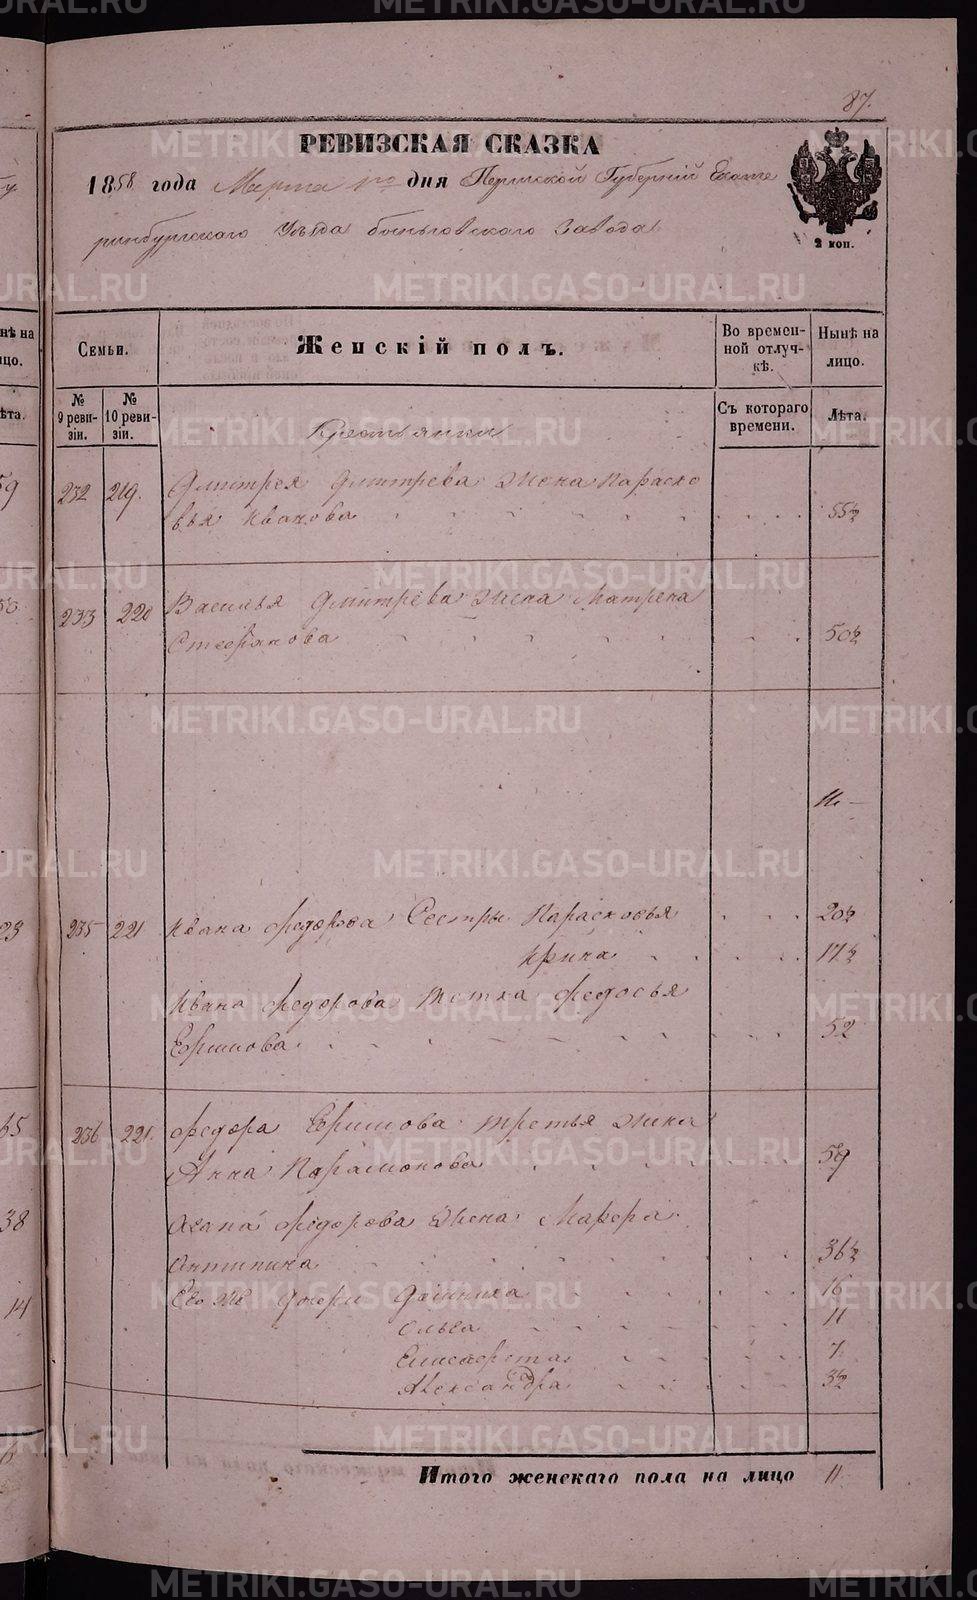 87.
РЕВИЗСКАЯ СКАЗКА
1858 года Марта 1го дня Пермской Губерніи Екате
ринбургскаго Уѣзда Заводa
2 коп.
Семьи.
Женскій полъ.
Во времен-
ной отлуч-
кѣ.
Нынѣ на
лицо.
№
9 реви-
зіи.
№
10 реви-
зіи.
Съ котораго
времени.
Лѣта.
Крестьянки
232 219. Дмитрея Дмитрева жена Параско
вья Иванова 55½
233 220 Василья Дмитрева жена Матрена
Стефанова 50½
11 —
235 221 Ивана Федорова Сестры Парасковья 20½
Ирина 17½
Ивана Федорова тетка Федосья
Ефимова 52
236 221. Федора Ефимова третья жена
Анна Парамонова 59
Федорова жена Марфа
Антипина 36½
Его же дочери 16
Ольга 11
Елисафета 7
Александра 3½
Итого женскаго пола на лицо 11.
METRIKI.GASO-URAL.RU